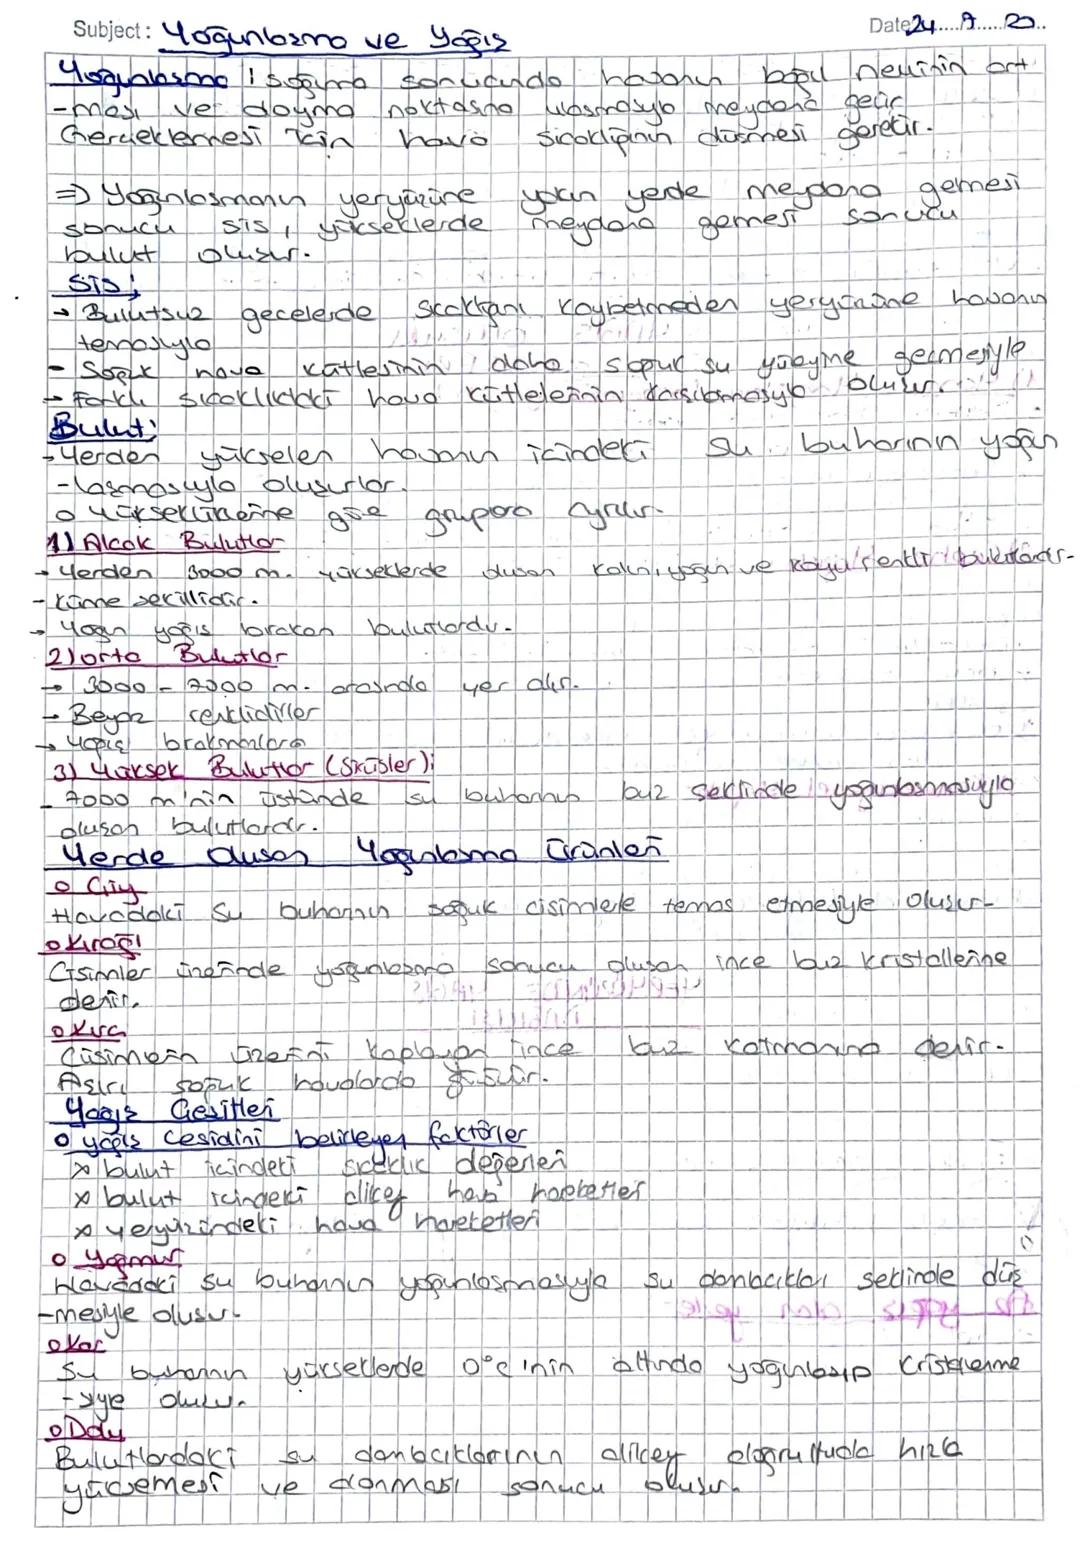 Subject: Yoğunlaşma ve Yağış
Date 24
Yoğunlaşma : Soğuma sonucunda havanın bağıl neminin art
-ması ve doyma noktasına ulaşmasıyla meydana gelir
Gerçekleşmesi için hava sıcaklığının düşmesi gerekir.
⇒ Yoğunlaşmanın yeryüzüne yakın yerde meydana gelmesi
sonucu sis, yükseklerde meydana gelmesi sonucu
bulut oluşur.
Sis;
→ Bulutsuz gecelerde sıcaklığını kaybetmeden yeryüzüne havanın
temasıyla
- Soğuk hava kütlesinin daha soğuk su yüzeyine geçmesiyle
→ Farklı sıcaklıktaki hava kütlelerinin karşılaşmasıyla oluşur.
Bulut;
→ Yerden yükselen havanın içindeki su buharının yoğun
-laşmasıyla oluşurlar.
o Yüksekliklerine göre gruplara ayrılır.
1) Alçak Bulutlar
→ Yerden 3000 m. yükseklerde oluşan kalın, yoğun ve koyu renkli bulutlardır.
- Küme şekillidir.
→ Yoğun yağış bırakan bulutlardır.
2) Orta Bulutlar
→ 3000 - 7000 m. arasında yer alır.
→ Beyaz renklidirler
→ Yağış bırakmazlar
3) Yüksek Bulutlar (Sirüsler);
- 7000 m'nin üstünde su buharının buz şeklinde yoğunlaşmasıyla
oluşan bulutlardır.
Yerde Oluşan Yoğunlaşma Ürünleri
o Çiy
Havadaki su buharının soğuk cisimlere temas etmesiyle oluşur.
o Kırağı
Cisimler üzerinde yoğunlaşma sonucu oluşan ince buz kristallerine
denir.
o Kırç
Cisimlerin üzerini kaplayan ince buz katmanına denir.
Aşırı soğuk havalarda
Yağış Çeşitleri
o yağış çeşidini belirleyen faktörler
x bulut içindeki sıcaklık değerleri
x bulut içindeki dikey hava hareketleri
x yeryüzündeki hava hareketleri
o Yağmur
Havadaki su buharının yoğunlaşmasıyla su damlacıkları şeklinde düş
-mesiyle oluşur.
o Kar
Su buharının yükseklerde 0°C'nin altında yoğunlaşıp kristallenme
-siyle oluşur.
o Dolu
Bulutlardaki su damlacıklarının dikey doğrultuda hızla
yükselmesi ve donması sonucu oluşur.